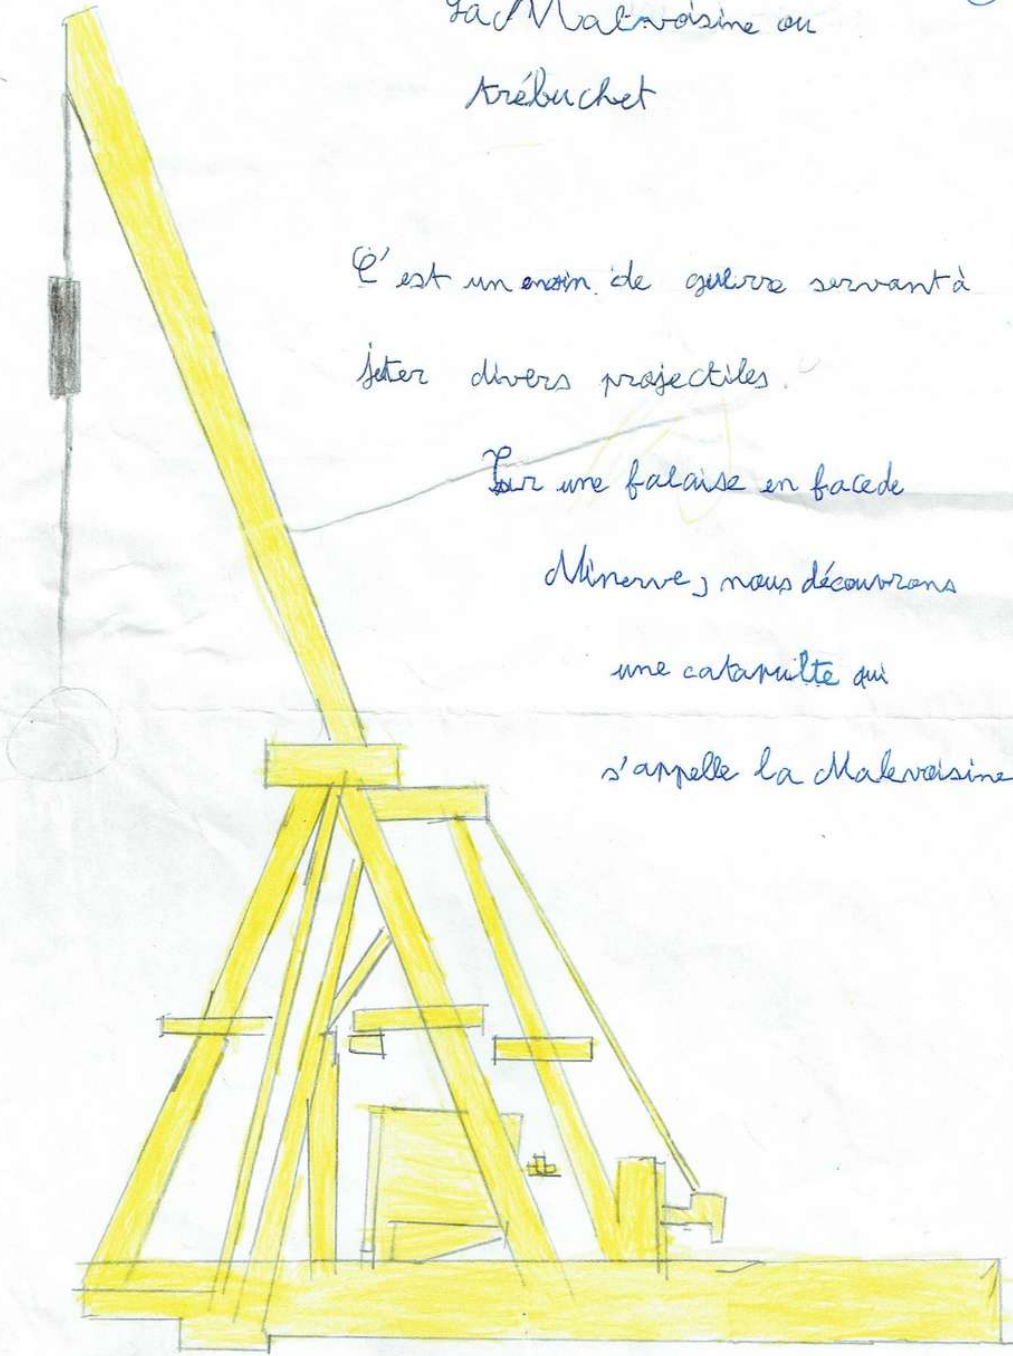 La Malvoisine ou
trébuchet
C'est un engin de guerre servant à
jeter divers projectiles.
Sur une falaise en face de
Minerve, nous découvrons
une catapulte qui
s'appelle la Malevoisine